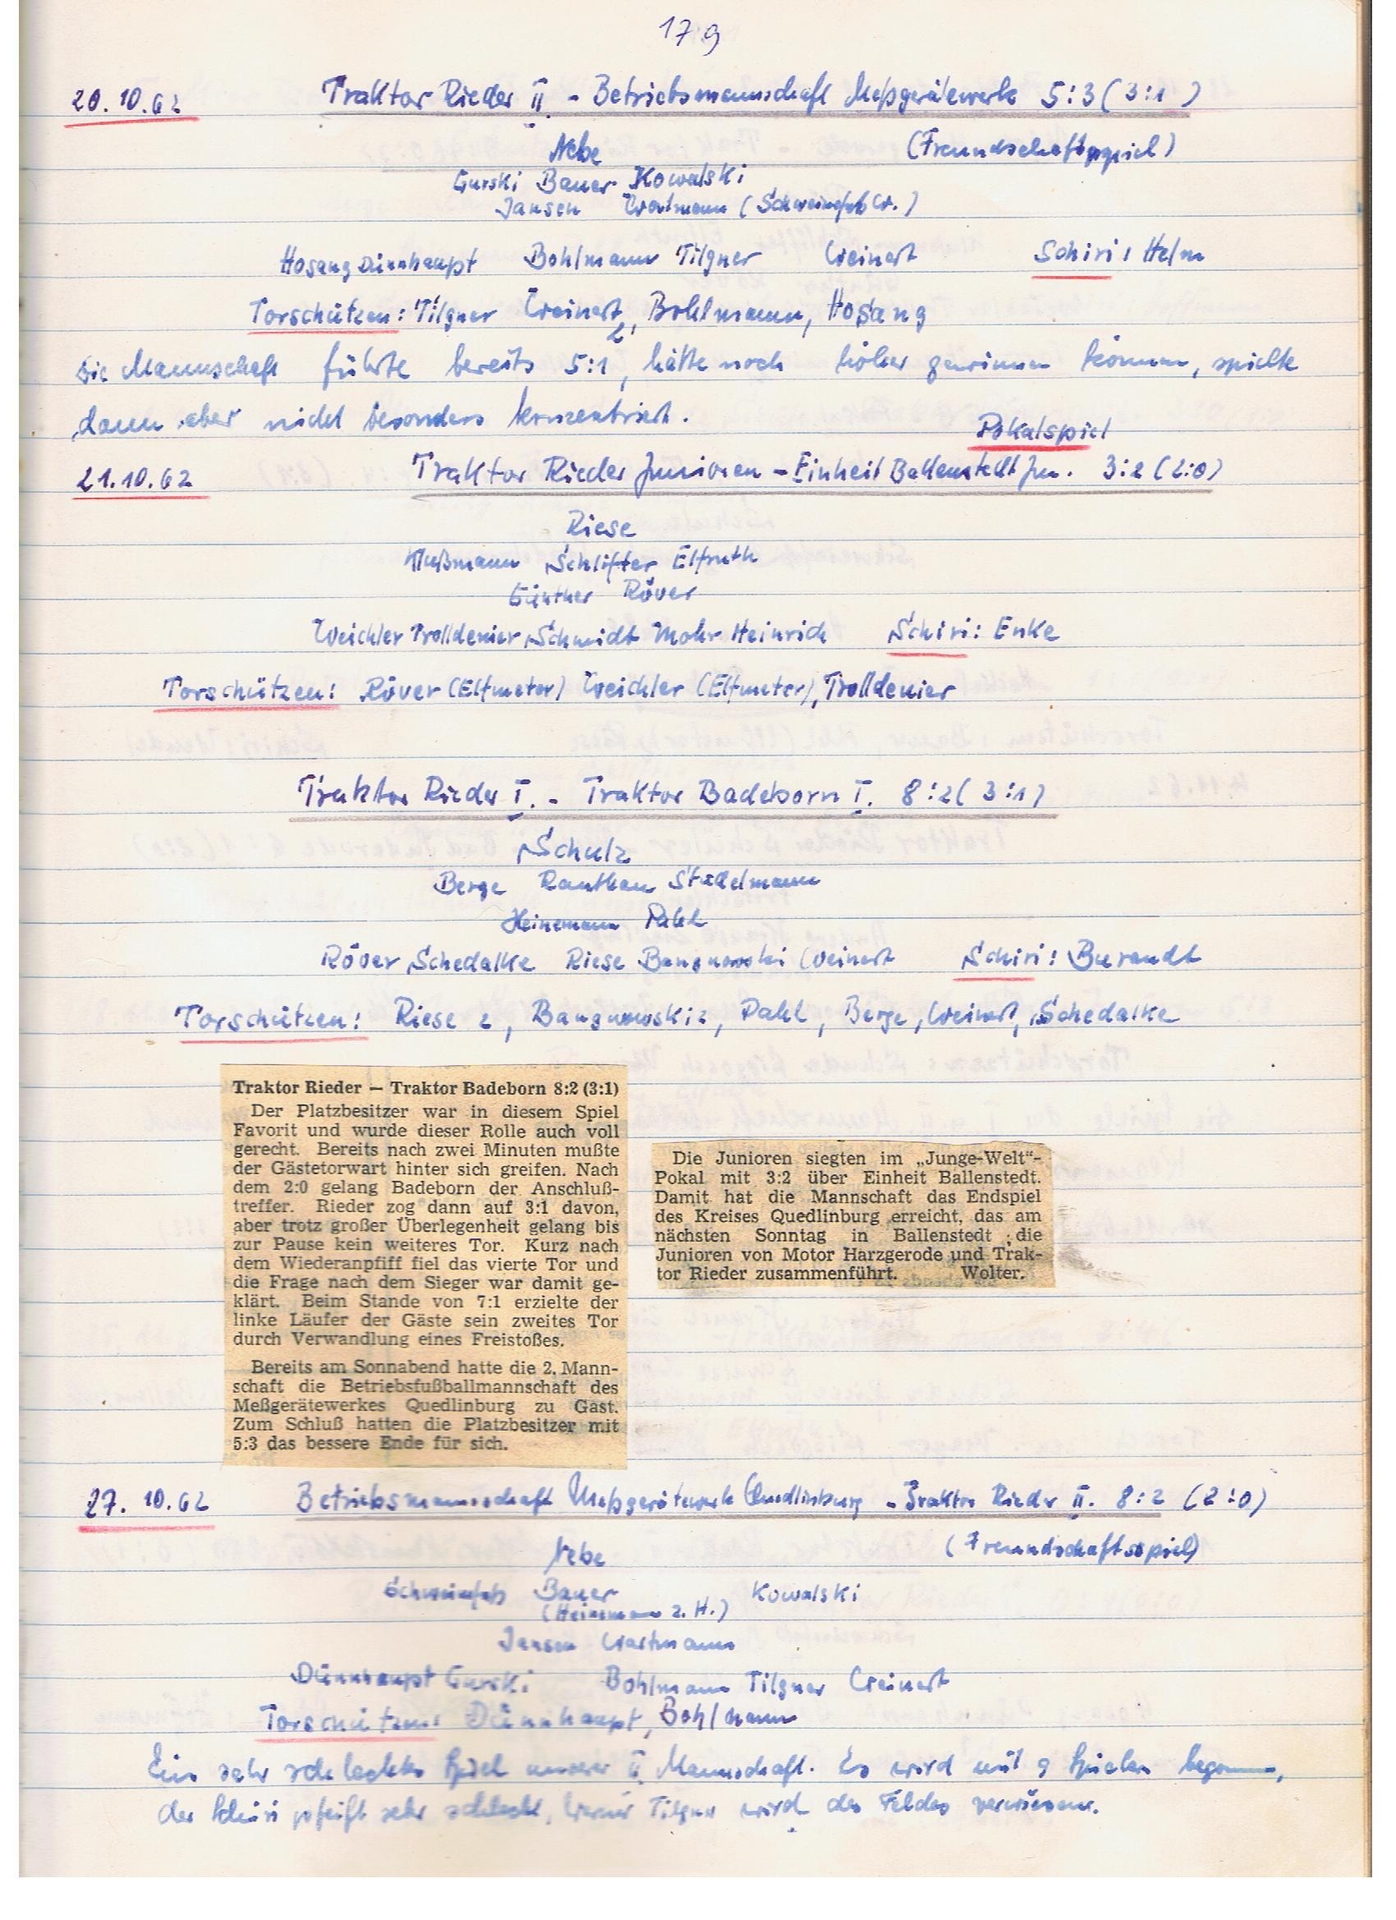 179
20.10.62 Traktor Rieder II - Betriebsmannschaft Meßgerätewerk 5:3 (3:1)
Nebe (Freundschaftsspiel)
Gurski Bauer Kowalski
Jansen Wortmann
Hosang Dünnhaupt Bohlmann Tilgner Weinert Schiri: Helm
Torschützen: Tilgner Weinert 2, Bohlmann, Hosang
Die Mannschaft führte bereits 5:1, hätte noch höher gewinnen können, spielte
dann aber nicht besonders konzentriert.
Pokalspiel
21.10.62 Traktor Rieder Junioren - Einheit Ballenstedt Jun. 3:2 (2:0)
Riese
Mußmann Schlifter Elfruth
Günther Röver
Weichler Trolldenier Schmidt Mohr Heinrich Schiri: Enke
Torschützen: Röver (Elfmeter) Weichler (Elfmeter), Trolldenier
Traktor Rieder I. - Traktor Badeborn I. 8:2 (3:1)
Schulz
Berge Rauthan Stadelmann
Heinemann Pahl
Röver Schedalke Riese Bangnowski Weinert Schiri: Burandt
Torschützen: Riese 2, Bangnowski 2, Pahl, Berge, Weinert, Schedalke
Traktor Rieder — Traktor Badeborn 8:2 (3:1)
Der Platzbesitzer war in diesem Spiel
Favorit und wurde dieser Rolle auch voll
gerecht. Bereits nach zwei Minuten mußte
der Gästetorwart hinter sich greifen. Nach
dem 2:0 gelang Badeborn der Anschluß-
treffer. Rieder zog dann auf 3:1 davon,
aber trotz großer Überlegenheit gelang bis
zur Pause kein weiteres Tor. Kurz nach
dem Wiederanpfiff fiel das vierte Tor und
die Frage nach dem Sieger war damit ge-
klärt. Beim Stande von 7:1 erzielte der
linke Läufer der Gäste sein zweites Tor
durch Verwandlung eines Freistoßes.
Bereits am Sonnabend hatte die 2. Mann-
schaft die Betriebsfußballmannschaft des
Meßgerätewerkes Quedlinburg zu Gast.
Zum Schluß hatten die Platzbesitzer mit
5:3 das bessere Ende für sich.
Die Junioren siegten im „Junge-Welt“-
Pokal mit 3:2 über Einheit Ballenstedt.
Damit hat die Mannschaft das Endspiel
des Kreises Quedlinburg erreicht, das am
nächsten Sonntag in Ballenstedt die
Junioren von Motor Harzgerode und Trak-
tor Rieder zusammenführt. Wolter.
27.10.62 Betriebsmannschaft Meßgerätewerk Quedlinburg - Traktor Rieder II. 8:2 (2:0)
Nebe (Freundschaftsspiel)
Bauer Kowalski
(Heinemann 2. H.)
Jansen Wortmann
Dünnhaupt Gurski Bohlmann Tilgner Weinert
Torschützen: Dünnhaupt, Bohlmann
Ein sehr schlechtes Spiel unserer II. Mannschaft. Es wird mit 9 Spielern begonnen,
der Schiri pfeift sehr schlecht, Werner Tilgner wird des Feldes verwiesen.